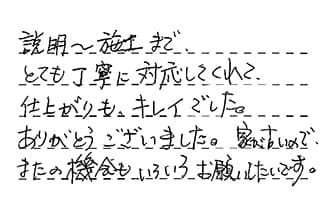 説明〜施工まで、
とても丁寧に対応してくれて、
仕上がりも、キレイでした。
ありがとうございました。家が古いので、
またの機会もいろいろお願いしたいです。